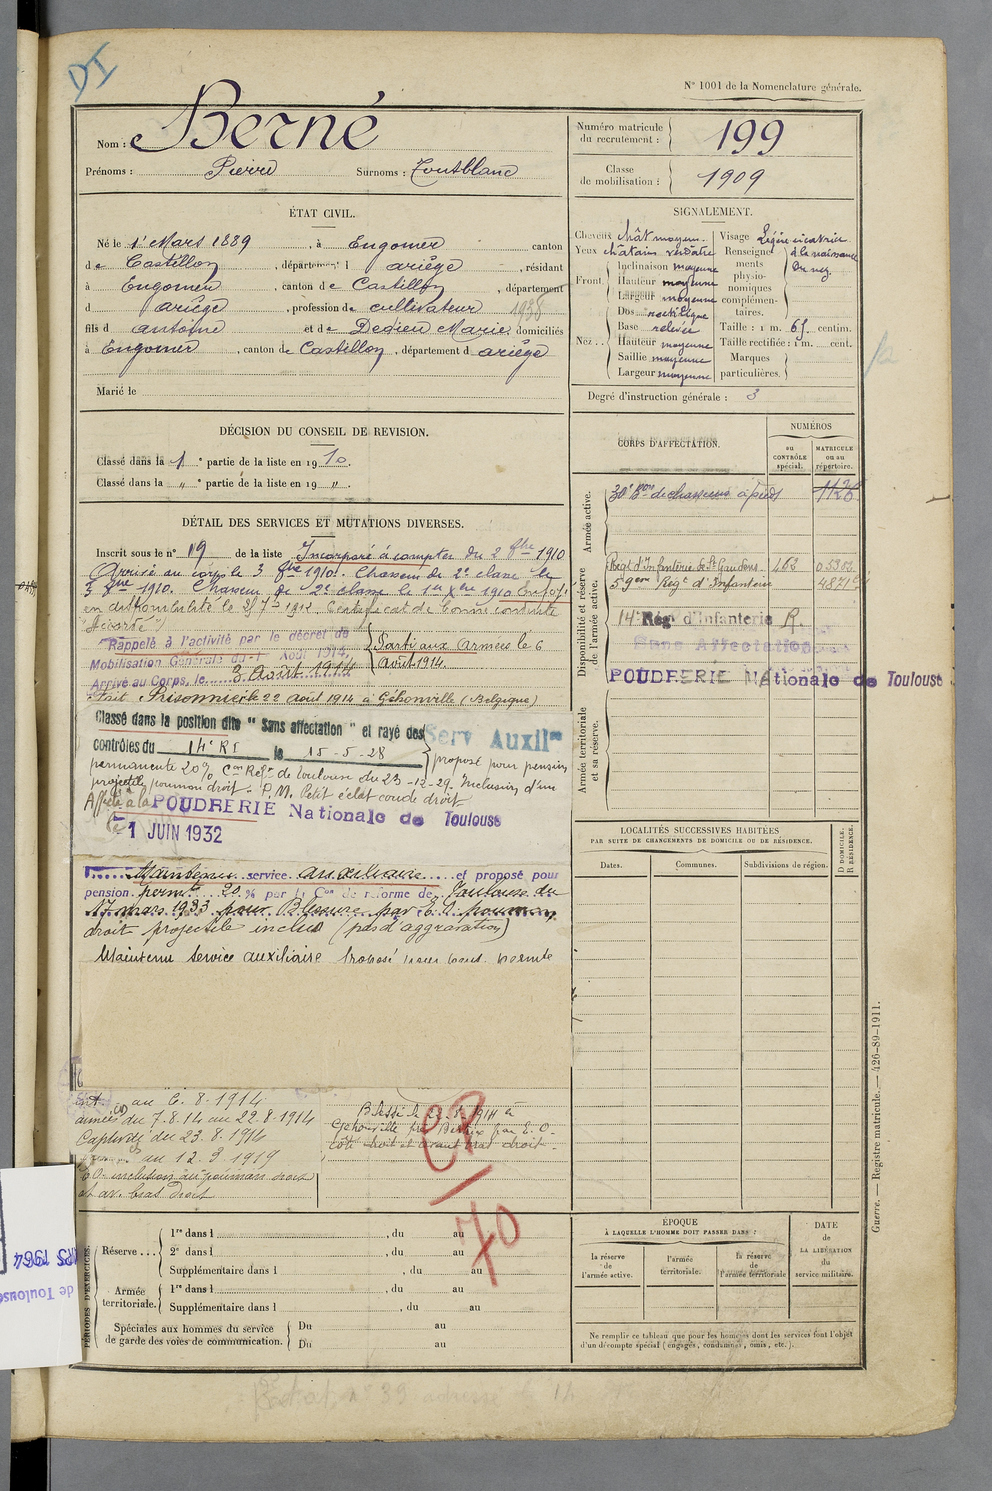 DI
N° 1001 de la Nomenclature générale.
Nom : Berné
Prénoms : Pierre Surnoms : Toutblanc
Numéro matricule du recrutement : 199
Classe de mobilisation : 1909
ÉTAT CIVIL.
Né le 1er Mars 1889, à Engomer canton
de Castillon, département d ariège, résidant
à Engomer, canton de Castillon, département
d ariège, profession de cultivateur 1938
fils d antoine et de Dedieu Marie domiciliés
à Engomer, canton de Castillon, département d ariège
Marié le
SIGNALEMENT.
Cheveux chât moyen.
Yeux châtain verdâtre
Front. Inclinaison moyenne
Hauteur moyenne
Largeur moyenne
Nez... Dos rectiligne
Base relevée
Hauteur moyenne
Saillie moyenne
Largeur moyenne
Visage Légère cicatrice
Renseignements physionomiques complémentaires. à la naissance du nez.
Taille : 1 m. 65 centim.
Taille rectifiée : 1 m. cent.
Marques particulières.
Degré d'instruction générale : 3
DÉCISION DU CONSEIL DE REVISION.
Classé dans la 1 e partie de la liste en 1910.
Classé dans la " e partie de la liste en 19 ".
CORPS D'AFFECTATION.
NUMÉROS
au CONTRÔLE spécial.
MATRICULE ou au répertoire.
Armée active.
30e Bon de chasseurs à pied 1126
Disponibilité et réserve de l'armée active.
Régt d'Infanterie de St Gaudens. 462
59eme Régt d'Infanterie
14e Rég' d'Infanterie R.
Sans Affectation
POUDRERIE Nationale de Toulouse
Armée territoriale et sa réserve.
DÉTAIL DES SERVICES ET MUTATIONS DIVERSES.
Inscrit sous le n° 19 de la liste Incorporé à compter du 2 8bre 1910
Arrivé au corps le 3 8bre 1910. Chasseur de 2e classe le
3 8bre 1910. Chasseur de 1e classe le
en disponibilité le 25 7bre 1912. Certificat de bonne conduite
"Accordé"
Rappelé à l'activité par le décret de
Mobilisation Générale du 1 Août 1914.
Arrivé au Corps, le 3 Août 1914
Parti aux Armées le 6
Août 1914.
Fait Prisonnier le 22 août 1914 à (Belgique)
Classé dans la position dite " Sans affectation " et rayé des
contrôles du 14e RI le 15-5-28
Serv Auxilre
proposé pour pension
permanente 20% Con Réf. de Toulouse du 23-12-29. Inclusion d'un
projectile poumon droit. P.M. Petit éclat coude droit.
Affecté à la POUDRERIE Nationale de Toulouse
le 1 JUIN 1932
Maintenu service auxiliaire et proposé pour
pension permte 20 % par la Con de réforme de Toulouse du
17 mars 1933 pour Blessure par E.O. poumon
droit projectile inclus (pas d'aggravation)
Maintenu service auxiliaire Proposé pour pens. permte
au 6.8.1914
armées du 7.8.14 au 22.8.1914
Captivité du 23.8.1914
au 12.3.1919
E.O. inclusion au poumon droit
et av. bras droit
Blessé le 22.8.1914 à
par E.O.
côté droit et avant bras droit.
CP
70
LOCALITÉS SUCCESSIVES HABITÉES
PAR SUITE DE CHANGEMENTS DE DOMICILE OU DE RÉSIDENCE.
Dates. Communes. Subdivisions de région. D DOMICILE. R RÉSIDENCE.
PÉRIODES D'EXERCICES.
Réserve...
1re dans l , du au
2e dans l , du au
Supplémentaire dans l , du au
Armée territoriale.
1re dans l , du au
Supplémentaire dans l , du au
Spéciales aux hommes du service de garde des voies de communication.
Du au
Du au
ÉPOQUE
À LAQUELLE L'HOMME DOIT PASSER DANS :
la réserve de l'armée active.
l'armée territoriale.
la réserve de l'armée territoriale
DATE DE LA LIBÉRATION du service militaire.
Ne remplir ce tableau que pour les hommes dont les services font l'objet
d'un décompte spécial (engagés, condamnés, omis, etc.).
Guerre. — Registre matricule. — 426-89-1911.
1964
de Toulouse